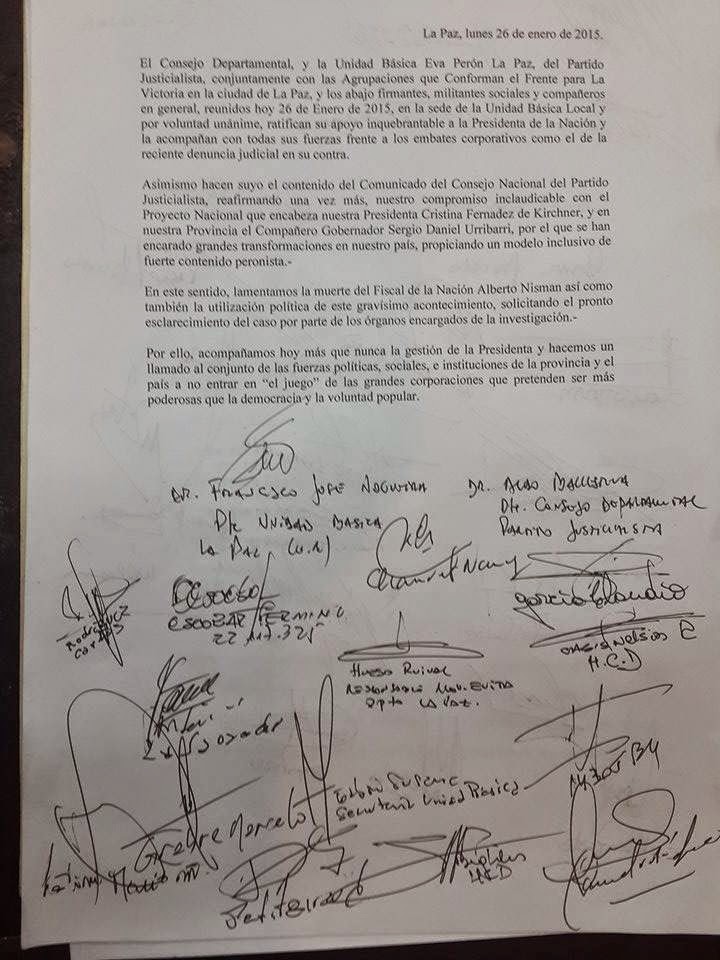 La Paz, lunes 26 de enero de 2015.
El Consejo Departamental, y la Unidad Básica Eva Perón La Paz, del Partido
Justicialista, conjuntamente con las Agrupaciones que Conforman el Frente para La
Victoria en la ciudad de La Paz, y los abajo firmantes, militantes sociales y compañeros
en general, reunidos hoy 26 de Enero de 2015, en la sede de la Unidad Básica Local y
por voluntad unánime, ratifican su apoyo inquebrantable a la Presidenta de la Nación y
la acompañan con todas sus fuerzas frente a los embates corporativos como el de la
reciente denuncia judicial en su contra.
Asimismo hacen suyo el contenido del Comunicado del Consejo Nacional del Partido
Justicialista, reafirmando una vez más, nuestro compromiso inclaudicable con el
Proyecto Nacional que encabeza nuestra Presidenta Cristina Fernadez de Kirchner, y en
nuestra Provincia el Compañero Gobernador Sergio Daniel Urribarri, por el que se han
encarado grandes transformaciones en nuestro país, propiciando un modelo inclusivo de
fuerte contenido peronista.-
En este sentido, lamentamos la muerte del Fiscal de la Nación Alberto Nisman así como
también la utilización política de este gravísimo acontecimiento, solicitando el pronto
esclarecimiento del caso por parte de los órganos encargados de la investigación.-
Por ello, acompañamos hoy más que nunca la gestión de la Presidenta y hacemos un
llamado al conjunto de las fuerzas políticas, sociales, e instituciones de la provincia y el
país a no entrar en “el juego” de las grandes corporaciones que pretenden ser más
poderosas que la democracia y la voluntad popular.
DR. FRANCISCO JOSE NOGUEIRA
UNIDAD BASICA
LA PAZ
DR. ALDO BALLESTENA
CONSEJO DEPARTAMENTAL
PARTIDO JUSTICIALISTA
Nancy
Garcia Claudio
Rodriguez
Carlos
ESCOBAR FERMIN
H.C.D
Hugo Ruival
RESPONSABLE MOV. EVITA
DPTO LA PAZ.
Marcelo
Secretaria Unidad Basica
HCD